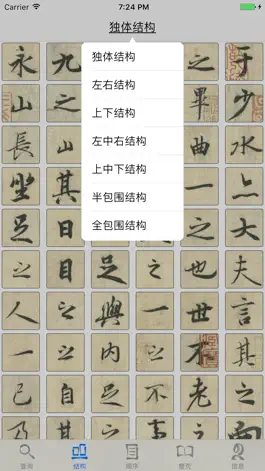 Carrier 7:24 PM
独体结构
独体结构
左右结构
上下结构
左中右结构
上中下结构
半包围结构
全包围结构
永 九 之 于
山 之 畢 少
長 曲 水
坐 其 一 上
足 日
目 足 之 也 夫
人 與 一 世 言
一 内 不 其
己 自 足 不 老 之
其
查询 结构 顺序 信息